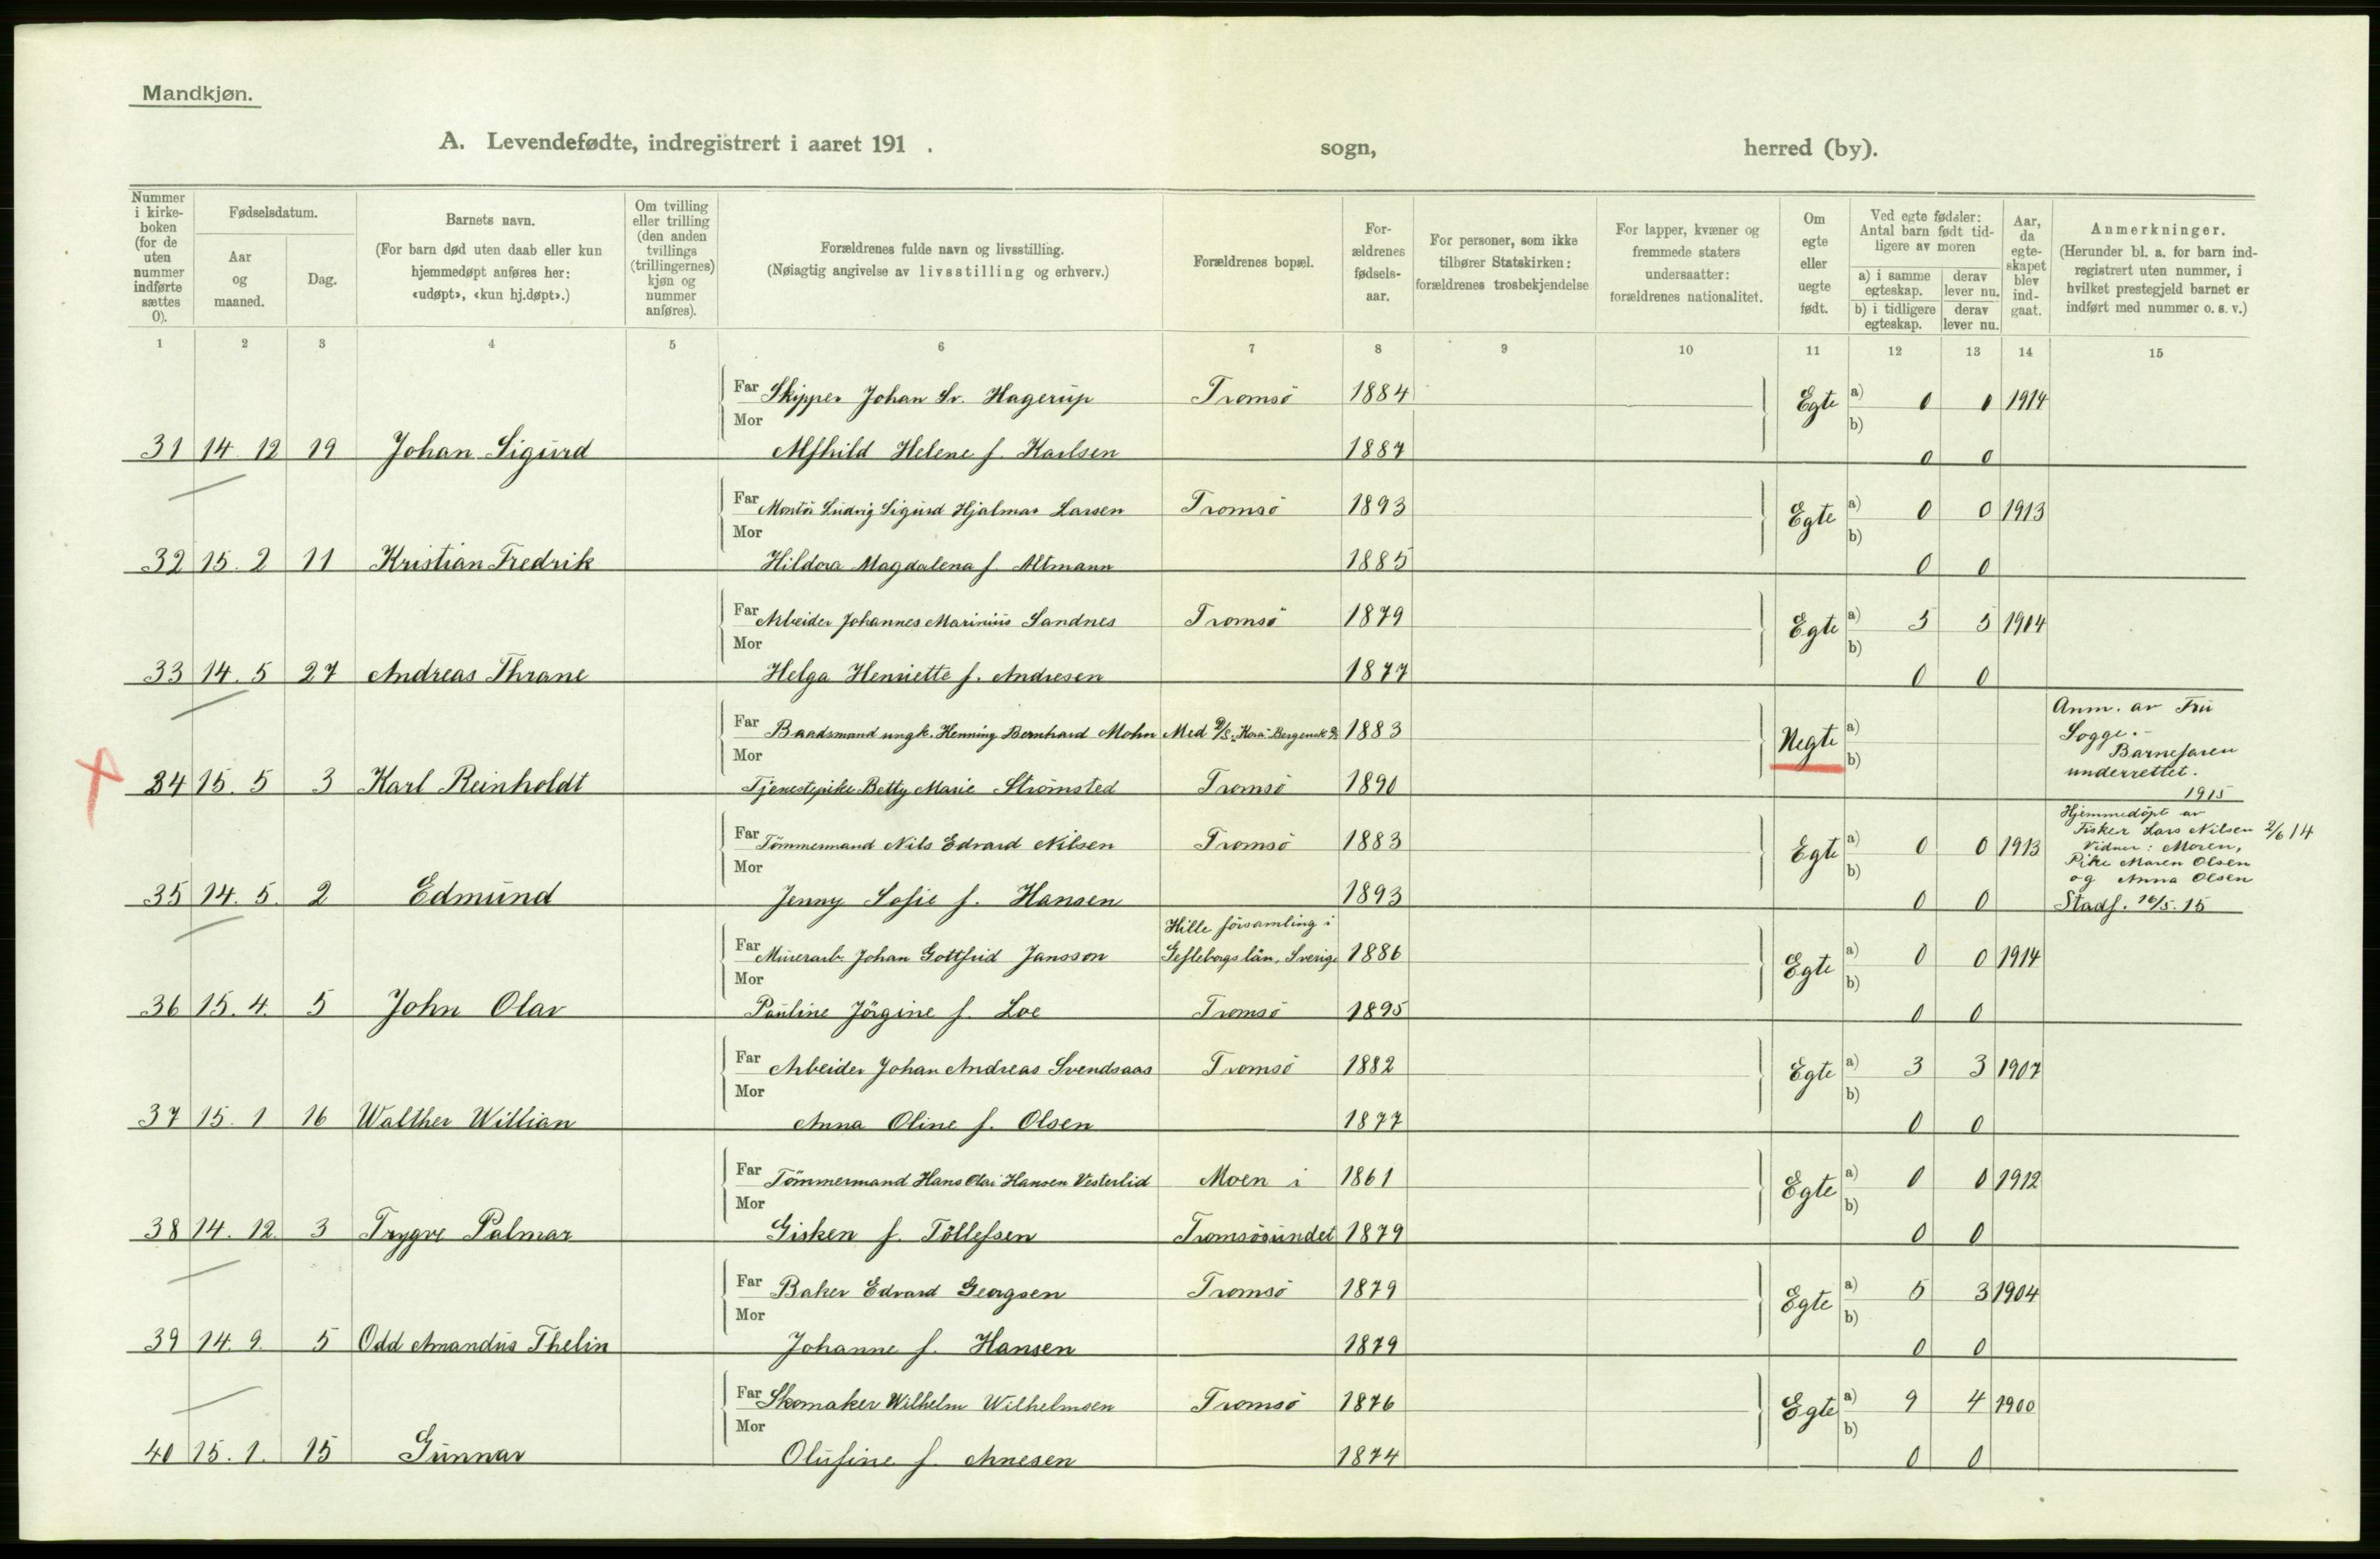 Mandkjøn.
A. Levendefødte, indregistrert i aaret 191 . sogn, herred (by).
Nummer i kirke-boken (for de uten nummer indførte sættes 0).
Fødselsdatum.
Aar og maaned.
Dag.
Barnets navn.
(For barn død uten daab eller kun hjemmedøpt anføres her: «udøpt», «kun hj.døpt».)
Om tvilling eller trilling (den anden tvillings (trillingernes) kjøn og nummer anføres).
Forældrenes fulde navn og livsstilling.
(Nøiagtig angivelse av livsstilling og erhverv.)
Forældrenes bopæl.
For-ældrenes fødsels-aar.
For personer, som ikke tilhører Statskirken: forældrenes trosbekjendelse
For lapper, kvæner og fremmede staters undersaatter: forældrenes nationalitet.
Om egte eller uegte født.
Ved egte fødsler: Antal barn født tid-ligere av moren
a) i samme egteskap.
derav lever nu.
b) i tidligere egteskap.
derav lever nu.
Aar, da egte-skapet blev ind-gaat.
Anmerkninger.
(Herunder bl. a. for barn ind-registrert uten nummer, i hvilket prestegjeld barnet er indført med nummer o. s. v.)
1 2 3 4 5 6 7 8 9 10 11 12 13 14 15
Far Skipper Johan Sv. Hagerup Tromsö 1884 Egte a) 0 0 1914
Mor b)
31 14 12 19 Johan Sigurd Alfhild Helene f. Karlsen 1887 0 0
Far Montör Ludvig Sigurd Hjalmar Larsen Tromsö 1893 Egte a) 0 0 1913
Mor b)
32 15. 2 11 Kristian Fredrik Hildora Magdalena f. Altmann 1885 0 0
Far Arbeider Johannes Marinius Sandnes Tromsö 1879 Egte a) 5 5 1904
Mor b)
33 14. 5 27 Andreas Thrane Helga Henriette f. Andresen 1877 0 0
Far Baadsmand ungk. Henning Bernhard Mohn Med D/S. "Kora" Bergensk D/S 1883 Uegte a) Anm. av Fru
Sogge.-
Mor b) Barnefaren
underrettet.
34 15. 5 3 Karl Reinholdt Tjenestepike Betty Marie Strömsted Tromsö 1890 1915
Far Tömmermand Nils Edvard Nilsen Tromsö 1883 Egte a) 0 0 1913 Hjemmedöpt av
Fisker Lars Nilsen 2/6 14
Vidner: Moren,
Mor b) Pike Maren Olsen
og Anna Olsen
35 14. 5. 2 Edmund Jenny Sofie f. Hansen 1893 0 0 Stadf. 16/5. 15
Hille församling i
Far Murerarb. Johan Gottfrid Jansson Gefleborgs län, Sverige 1886 Egte a) 0 0 1914
Mor b)
36 15. 4. 5 John Olav Pauline Jörgine f. Loe Tromsö 1895 0 0
Far Arbeider Johan Andreas Svendsaas Tromsö 1882 Egte a) 3 3 1907
Mor b)
37 15. 1 16 Walther Willian Anna Oline f. Olsen 1877 0 0
Far Tömmermand Hans Olai Hansen Vesterlid Moen i 1861 Egte a) 0 0 1912
Mor b)
38 14. 12. 3 Trygve Palmar Gisken f. Töllefsen Tromsösundet 1879 0 0
Far Baker Edvard Georgsen Tromsö 1879 Egte a) 5 3 1904
Mor b)
39 14. 9. 5 Odd Amandus Thelin Johanne f. Hansen 1879 0 0
Far Skomaker Wilhelm Wilhelmsen Tromsö 1876 Egte a) 9 4 1900
Mor b)
40 15. 1. 15 Gunnar Olufine f. Arnesen 1874 0 0